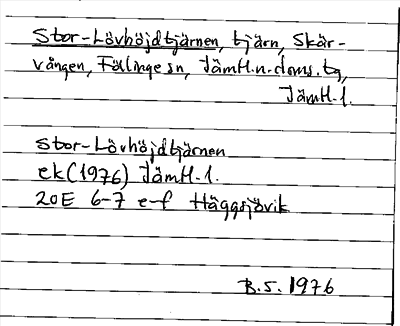 Stor-Lövhöjdtjärnen, tjärn, Skär-
vången, Föllinge sn, Jämtl.n.doms.tg,
Jämtl.l.
Stor-Lövhöjdtjärnen
ek(1976) Jämtl.l.
20E 6-7 e-f Häggsjövik
B.S. 1976